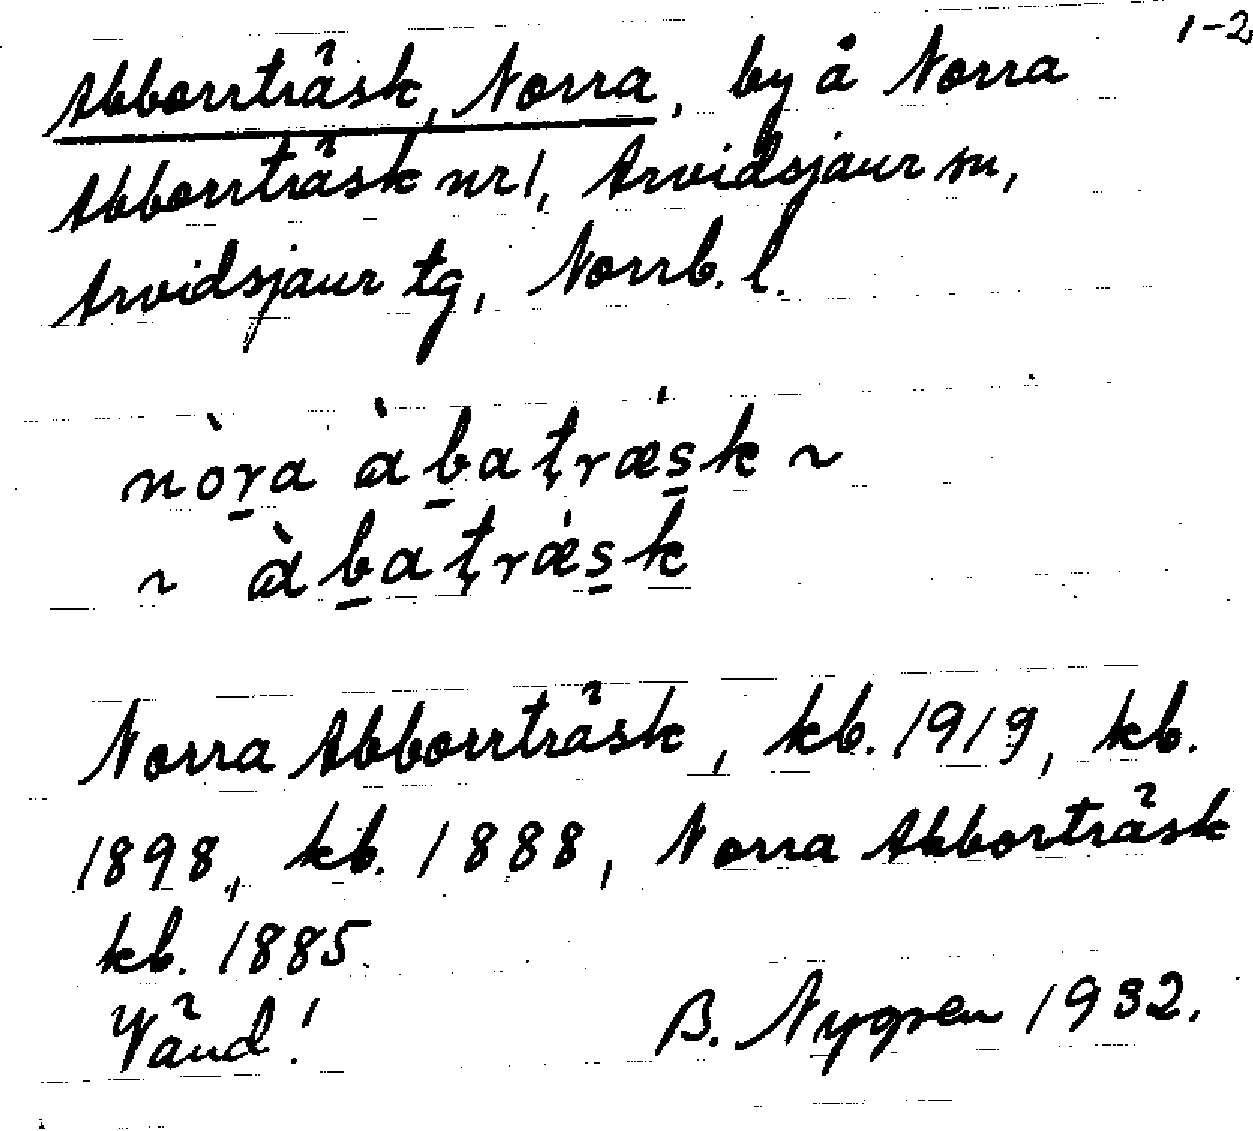 1-2
Abborrträsk, Norra, by å Norra
Abborrträsk nr 1, Arvidsjaur sn,
Arvidsjaur tg, Norrb. l.
nòr̠a àb̠aţræ̍s̠k ~
~ àb̠aţræ̍s̠k
Norra Abborrträsk, kb. 1919, kb.
1898, kb. 1888, Norra Abborträsk
kb. 1885.
Vänd! B. Nygren 1932.